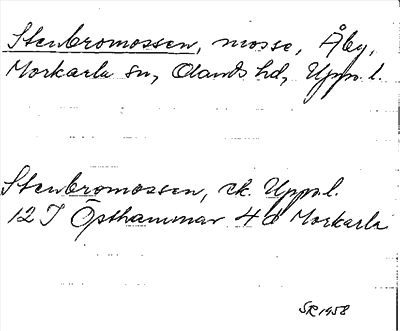 Stenbromossen, mosse, Åby,
Morkarla sn, Olands hd, Upps. l.
Stenbromossen, ek. Upps. l.
12 I Östhammar 4 d Morkarla
SR 1958